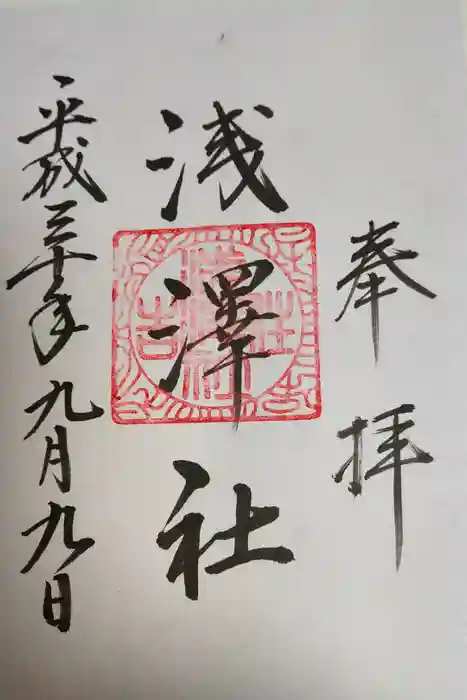 奉拝
浅澤社
平成三十年九月九日